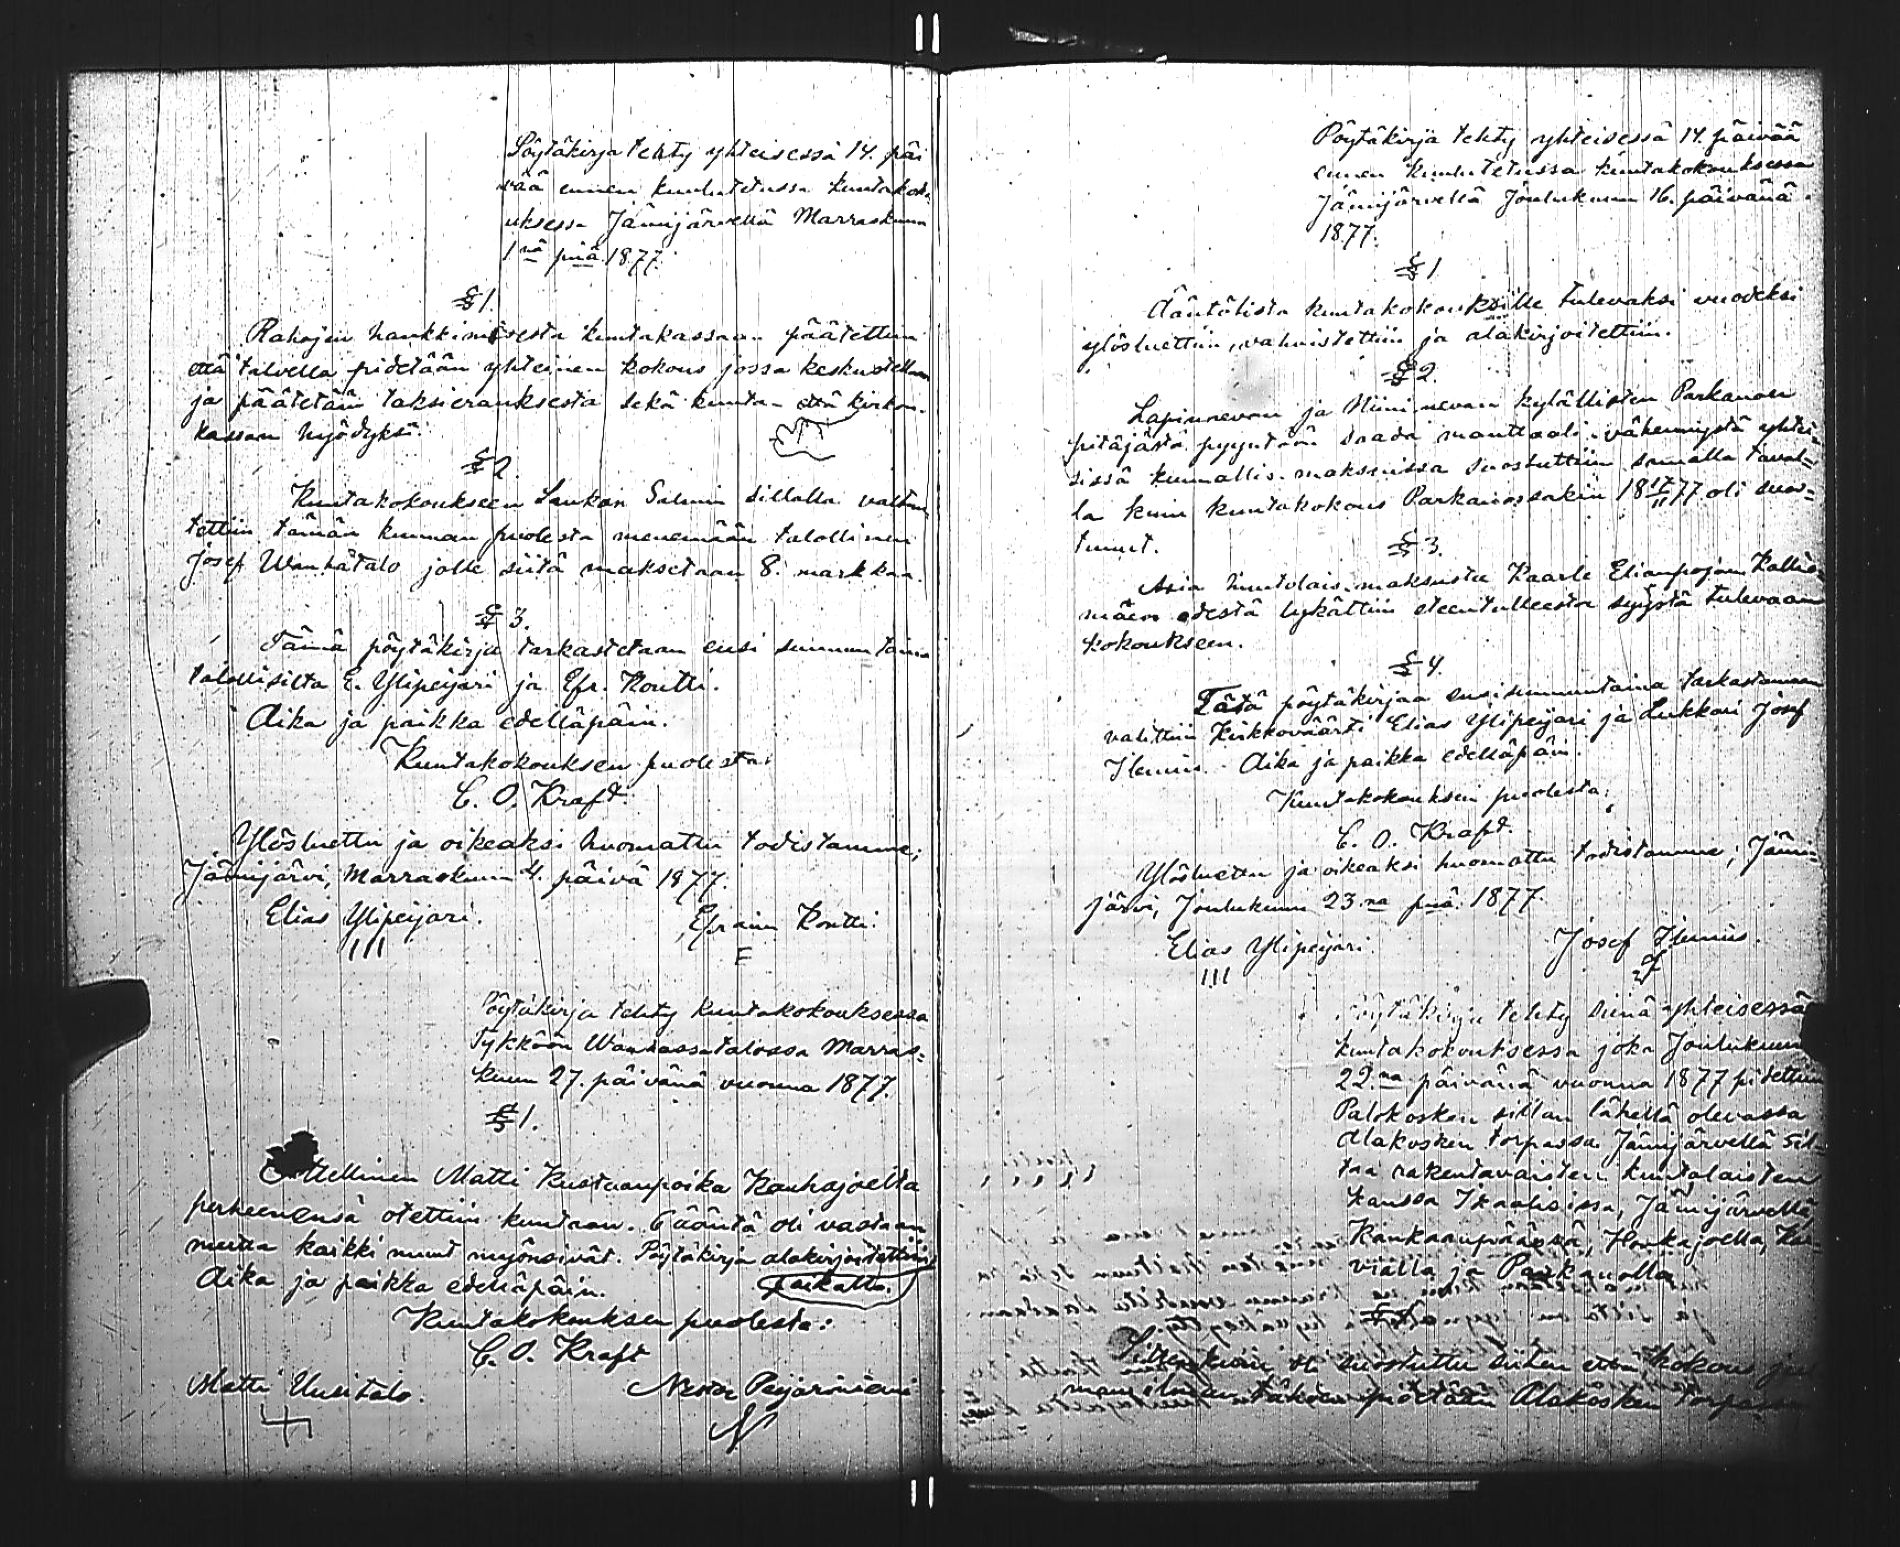 Pöytäkirja tehty yhteisessä 14. päi
vää ennen kuulutetussa kuntakok-
uksessa Jämijärvellä Marraskuun
1nä pnä 1877.
§ 1.
Rahojen hankkimisesta kuntakassaan päätettiin
että talvella pidetään yhteinen kokous jossa keskustellaan
ja päätetään taksierauksesta sekä kunta- että kirkon-
kassan hyödyksi.
§ 2.
Kuntakokoukseen Lankan Salmin sillalla valtuu
tettiin tämän kunnan puolesta menemään talollinen
Josef Wanhatalo jolle siitä maksetaan 8. markkaa.
§ 3.
Tämä pöytäkirja tarkastetaan ensi sunnuntaina
talollisilta E. Ylipeijari ja Efr. Kontti.
Aika ja paikka edelläpäin.
Kuntakokouksen puolesta:
C. O. Kraft.
Ylösluettu ja oikeaksi huomattu todistamme;
Jämijärvi, Marraskuun 4. päivä 1877.
Elias Ylipeijari. Efraim Kontti.
III E
Pöytäkirja tehty kuntakokouksessa
Tykköön Wanhassatalossa Marras=
kuun 27. päivänä vuonna 1877.
§ 1.
Matti Kustaanpoika Kauhajoelta
perheenensä otettiin kuntaan. 6 ääntä oli vastaan
mutta kaikki muut myönsivät. Pöytäkirja alakirjoitettiin
paikalla.
Aika ja paikka edelläpäin.
Kuntakokouksen puolesta:
C. O. Kraft
Matti Uusitalo. Nestor Peijariniemi
N
Pöytäkirja tehty yhteisessä 14. päivää
ennen kuulutetussa kuntakokouksessa
Jämijärvellä Joulukuun 16. päivänä
1877.
§ 1
Ääntölista kuntakokouksille tulevaksi vuodeksi
ylösluettiin, vahvistettiin ja alakirjoitettiin.
§ 2.
Lapinnevan ja Niininevan kylällisten Parkanon
pitäjästä pyyntöön saada manttaali-vähennystä yhtei=
sissä kunnallis-maksuissa suostuttiin samalla taval=
la kuin kuntakokous Parkanossakin 18 17/11 77 oli suos=
tunut.
§ 3.
Asia kuntolais-maksusta Kaarle Elianpojan Kallio=
mäen edestä lykättiin eteentulleesta syystä tulevaan
kokoukseen.
§ 4.
Tätä pöytäkirjaa ensisunnuntaina tarkastamaan
valittiin Kirkkoväärti Elias Ylipeijari ja Lukkari Josef
Ilenius. Aika ja paikka edelläpäin.
Kuntakokouksen puolesta:
C. O. Kraft.
Ylösluettu ja oikeaksi huomattu todistamme; Jämi=
järvi, Joulukuun 23.na pnä. 1877.
Elias Ylipeijari Josef Ilenius.
III
Pöytäkirja tehty siinä yhteisessä
kuntakokouksessa joka Joulukuun
22.na päivänä vuonna 1877 pidettiin
Palokosken sillan lähellä olevassa
Alakosken torpassa Jämijärvellä sil-
taa rakentavaisten kuntalaisten
kanssa Ikaalisissa, Jämijärvellä,
Kankaanpäässä, Honkajoella, Kar-
vialla ja Parkanolla
§ 1.
Sittenkuin oli suostuttu siihen että kokous
pidetään Alakosken torpassa